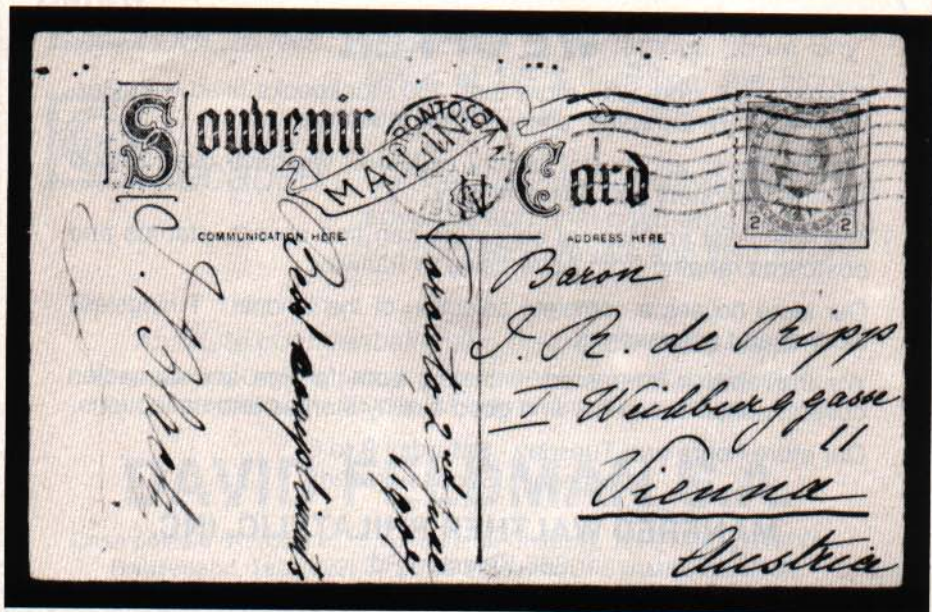 Souvenir Card
MAILIN
RONTO, CAN
COMMUNICATION HERE
ADDRESS HERE
2 2
Toronto 2nd June
Best compliments
Baron
J. R. de Ripp
I Weihburggasse
11
Vienna
Austria